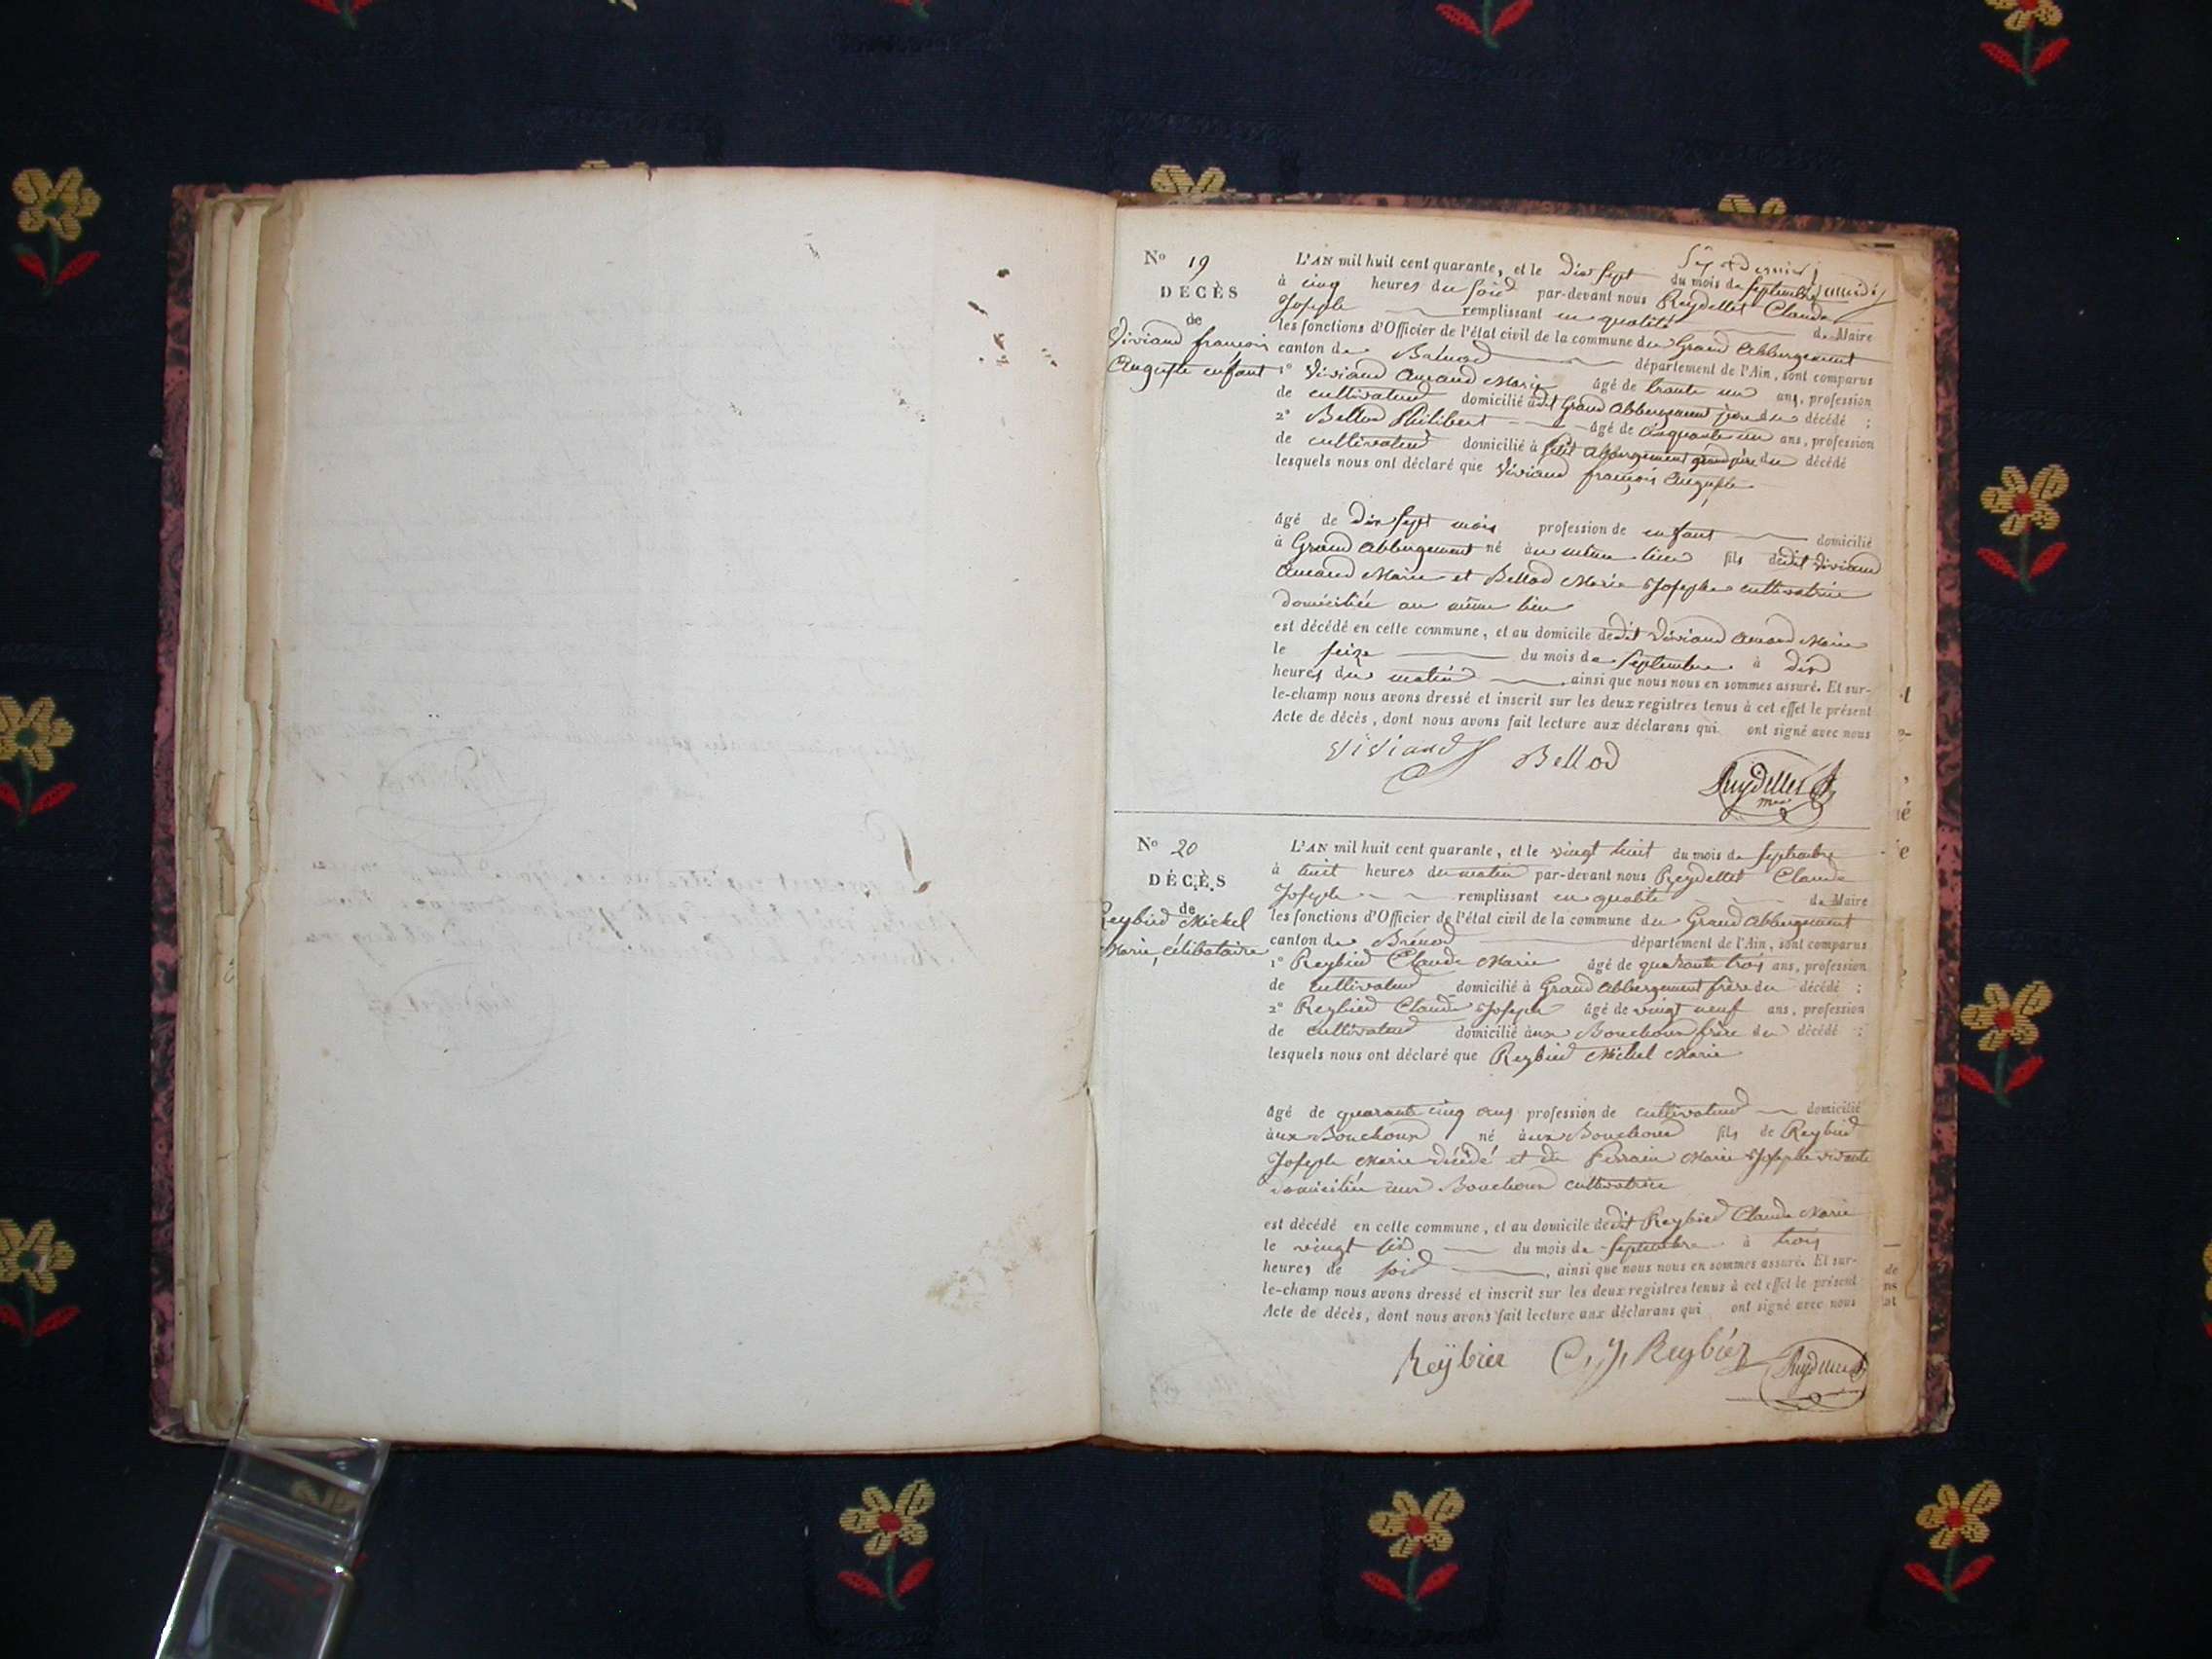 Nº 19
DÉCÈS
de
Viviand françois
Auguste enfant
Sixet dernier
L'AN mil huit cent quarante, et le dix sept du mois de septembre
à cinq heures du soir par-devant nous Reydellet Claude
Joseph remplissant en qualité de Maire
les fonctions d'Officier de l'état civil de la commune du Grand Abbergement
canton de Brénod département de l'Ain, sont comparus
1º Viviand Amand Marie âgé de trente un ans, profession
de cultivateur domicilié audit Grand Abbergement père du décédé ;
2º Bellod Philibert âgé de cinquante un ans, profession
de cultivateur domicilié à petit Abbergement grand père du décédé
lesquels nous ont déclaré que Viviand françois Auguste
âgé de dix sept mois profession de enfant domicilié
à Grand Abbergement né au même lieu fils dudit Viviand
Amand Marie et Bellod Marie Josephe cultivatrice
domiciliée au même lieu
est décédé en cette commune, et au domicile dudit Viviand Amand Marie
le seize du mois de septembre à dix
heures du matin, ainsi que nous nous en sommes assuré. Et sur-
le-champ nous avons dressé et inscrit sur les deux registres tenus à cet effet le présent
Acte de décès, dont nous avons fait lecture aux déclarans qui ont signé avec nous
Viviand Bellod
Reydellet
Nº 20
DÉCÈS
de
Reybier Michel
Marie, célibataire
L'AN mil huit cent quarante, et le vingt huit du mois de septembre
à huit heures du matin par-devant nous Reydellet Claude
Joseph remplissant en qualité de Maire
les fonctions d'Officier de l'état civil de la commune du Grand Abbergement
canton de Brénod département de l'Ain, sont comparus
1º Reybier Claude Marie âgé de quarante trois ans, profession
de cultivateur domicilié à Grand Abbergement frère du décédé ;
2º Reybier Claude Joseph âgé de vingt neuf ans, profession
de cultivateur domicilié aux Bouchoux frère du décédé ;
lesquels nous ont déclaré que Reybier Michel Marie
âgé de quarante cinq ans profession de cultivateur domicilié
aux Bouchoux né aux Bouchoux fils de Reybier
Joseph Marie décédé et de Perrain Marie Josephe vivante
domiciliée aux Bouchoux cultivatrice
est décédé en cette commune, et au domicile dudit Reybier Claude Marie
le vingt six du mois de septembre à trois
heures de soir, ainsi que nous nous en sommes assuré. Et sur-
le-champ nous avons dressé et inscrit sur les deux registres tenus à cet effet le présent
Acte de décès, dont nous avons fait lecture aux déclarans qui ont signé avec nous
Reÿbier C. J. Reybier Reydellet